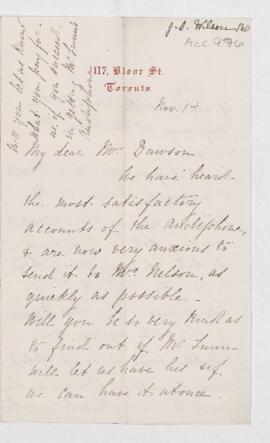 J. D. Wilson
Acc 976
117, Bloor St.
Toronto
Nov. 1st
Will you let us know
what you pay for
us, if you succeed
in getting Mr
Audiphone
My dear Mr Dawson
We have heard
the most satisfactory
accounts of the audiphone,
& are now very anxious to
send it to Mrs Nelson, as
quickly as possible.
Will you be so very kind as
to find out if Mr
will let us have his, if
we can have it at once.